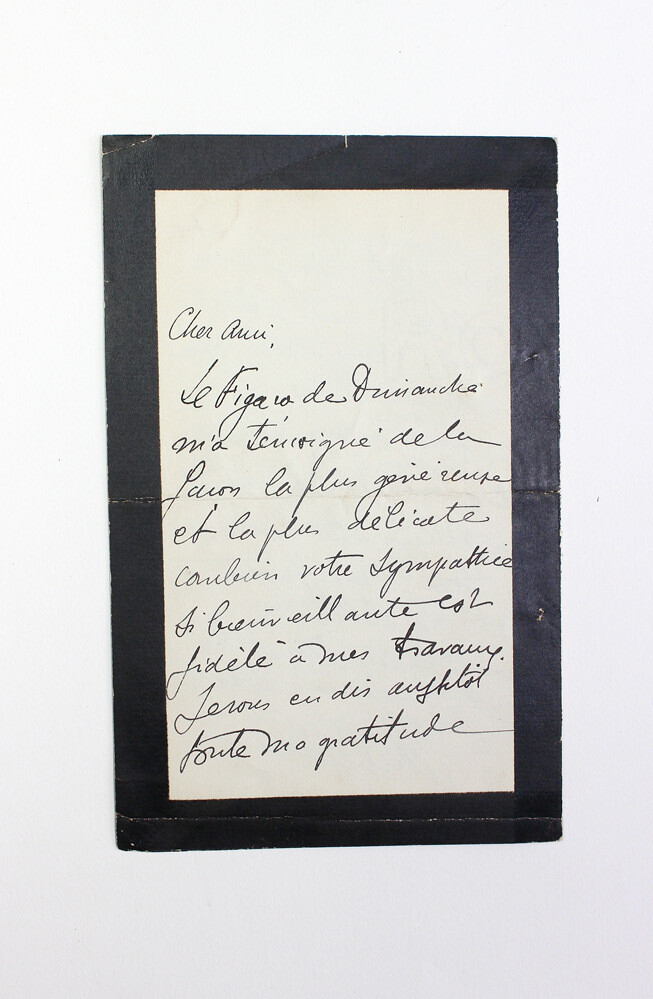 Cher Ami,
Le Figaro de Dimanche
m'a témoigné de la
façon la plus généreuse
et la plus délicate
combien votre sympathie
si bienveillante est
fidèle à mes travaux.
Je vous en dis aussitôt
toute ma gratitude